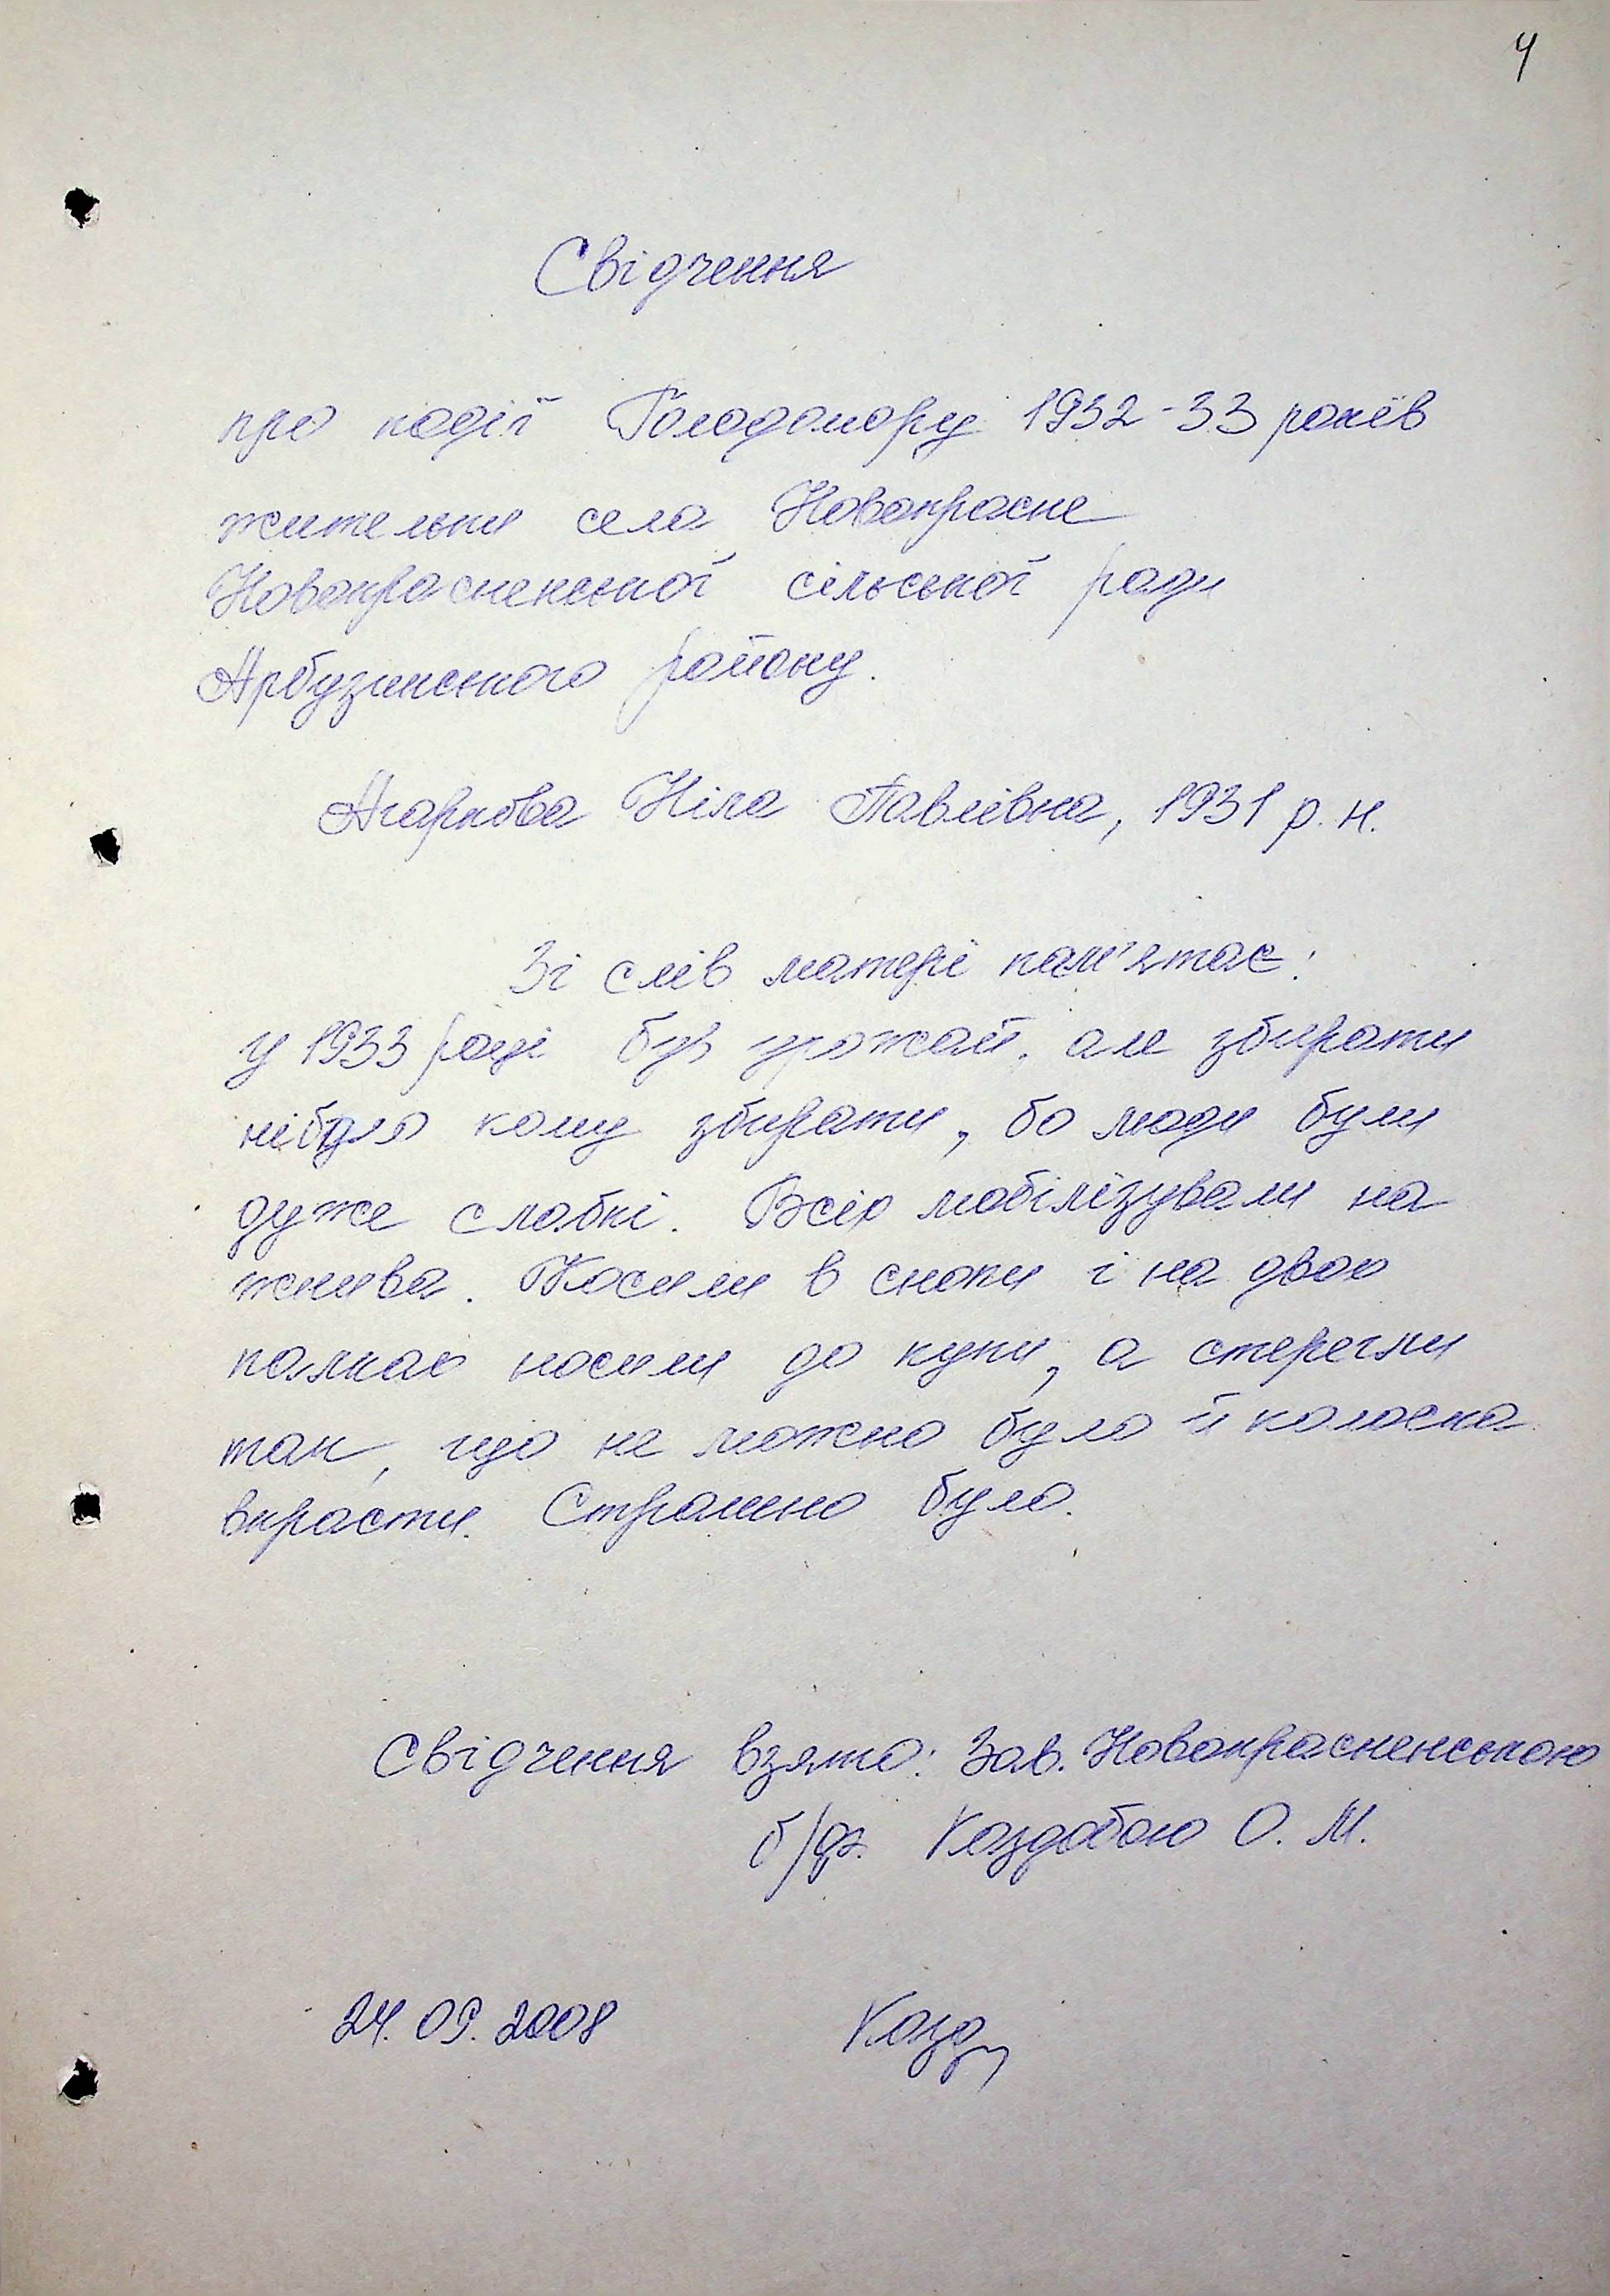 4
Свідчення
про події Голодомору 1932-33 років
жительки села Новокрасне
Новокрасненської сільської ради
Арбузинського району.
Агаркова Ніла Павлівна, 1931 р. н.
Зі слів матері пам'ятає:
у 1933 році був урожай, але збирати
нібуло кому збирати, бо люди були
дуже слабкі. Всіх мобілізували на
жнива. Косили в снопи і на двох
палках носили до купи, а стерегли
так, що не можно було й колоска
вкрасти. Страшно було.
Свідчення взято: Зав. Новокрасненською
б/ф. Каздобою О. М.
24.09.2008